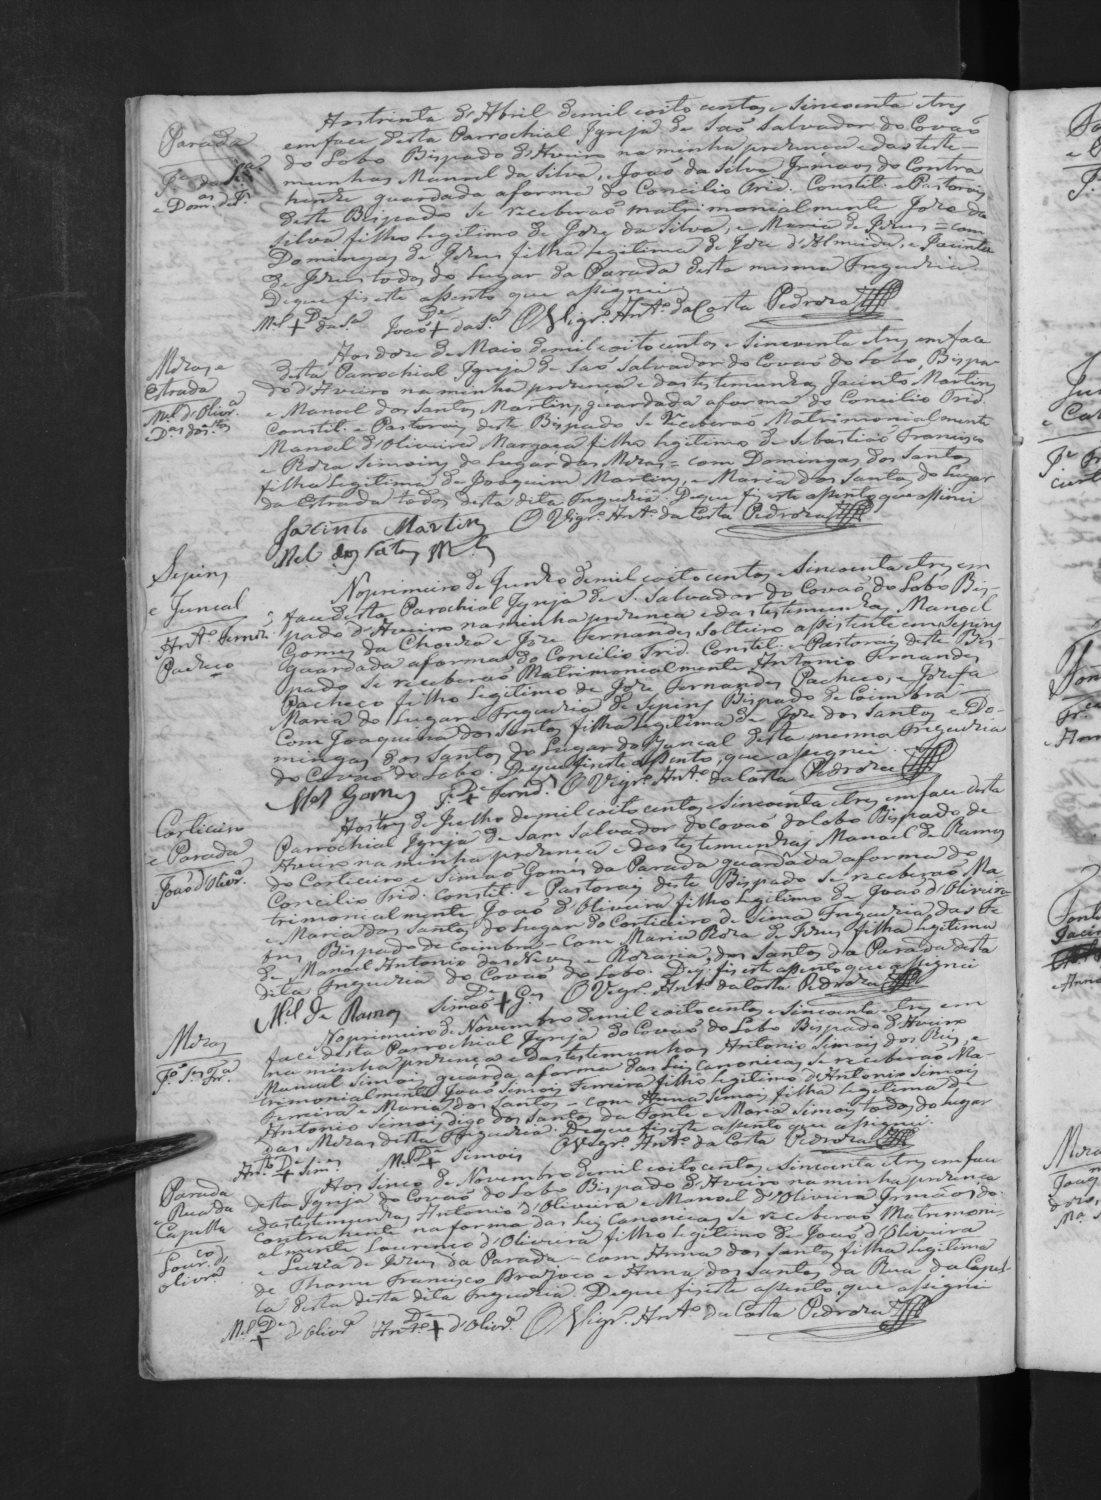 Parada
Jᵉ da Sªˡᵛᵃ
e Domᵃˢ de Jˢ
Aos trinta de Abril de mil oito centos e sincoenta e tres
em face desta Parrochial Igreja de Saõ Salvador do Covaõ
do Lobo Bispado d'Aveiro na minha prezença e das teste-
munhas Manoel da Silva, e Joaõ da Silva Irmaos do Contra
hente guardada a forma do Concilio Trid. Constit. e Pastorais
deste Bispado se receberaõ matrimonialmente Joze da
Silva filho legitimo de Joze da Silva, e Maria de Jezus = com
Domingas de Jezus filha legitima de Joze d'Almeida, e Jacinta
de Jezus todos do lugar da Parada desta mesma Freguezia
De que fis este assento que assignei
Mᵉˡ + da Sᵃ Joaõ + da Sᵃ O Vigrᵒ Antᵒ da Costa Pedroza
Mezas e
Estrada
Mᵉˡ d'Olivrᵃ
e Dᵃˢ dos Stᵒˢ
Aos doze de Maio de mil oito centos e sincoenta e tres em face
desta Parrochial Igreja de Saõ Salvador do Covaõ do Lobo, Bispa-
do d'Aveiro na minha prezença e das testemunhas Jacinto Martins
e Manoel dos Santos Martins guardada a forma do Concilio Trid.
Constit. e Pastorais deste Bispado se receberaõ Matrimonialmente
Manoel d'Oliveira Margaça filho legitimo de Sebastiaõ Francisco
e Roza Simoins do Lugar das Mezas = com Domingas dos Santos
filha legitima de Joaquim Martins, e Maria dos Santos do Lugar
da Estrada todos desta dita Freguezia. De que fis este assento que assinei
Jacinto Martins O Vigrᵒ Antᵒ da Costa Pedroza
Mel dos Satos M
Sepins
e Juncal
Antᵒ Fernds
Pacheco
No primeiro de Junho de mil oito centos e sincoenta e tres em
face desta Parochial Igreja de S. Salvador do Covaõ do Lobo Bis-
pado d'Aveiro na minha prezença e das testemunhas Manoel
Gomes da Choiza e Joze Fernandes Solteiro assistente em Sepins
guardada a forma do Concilio Trid. Constit. e Pastorais deste Bis-
pado se receberaõ Matrimonialmente Antonio Fernandes
Pacheco filho legitimo de Joze Fernandes Pacheco, e Jozefa
Maria do Lugar e Freguezia de Sepins Bispado de Coimbra =
Com Joaquina dos Santos filha legitima de Joze dos Santos e Do-
mingas dos Santos do Lugar do Juncal desta mesma Freguezia
do Covaõ do Lobo. De que fis este assento, que assignei.
Mel Gomes Jᵉ + Fernds. O Vigrᵒ Antᵒ da Costa Pedroza
Corticeiro
e Parada
Joaõ d'Olivrᵃ
Aos tres de Julho de mil oito centos e sincoenta e tres em face desta
Parrochial Igreja de Sam Salvador do Covaõ do Lobo Bispado de
Aveiro na minha prezença e das testemunhas Manoel de Ramos
do Corticeiro e Simaõ Gomes da Parada guardada a forma do
Concilio Trid. Constit. e Pastorais deste Bispado se receberaõ Ma-
trimonialmente Joaõ d'Oliveira filho legitimo de Joaõ d'Oliveira
e Maria dos Santos do Lugar do Corticeiro de Sima Freguezia das Fe-
bres Bispado de Coimbra = Com Maria Roza de Jezus filha legitima
de Manoel Antonio das Neves e Rozaria dos Santos da Parada desta
dita Freguezia do Covaõ do Lobo. De q. fis este assento que assignei
Mel de Ramos Simaõ + Gᵉˢ O Vigrᵒ Antᵒ da Costa Pedroza
Mezas
Jᵒ Sᵉˢ Frᵃ
No primeiro de Novembro de mil oito centos e sincoenta e tres em
face desta Parrochial Igreja do Covaõ do Lobo Bispado d'Aveiro
na minha prezença e das testemunhas Antonio Simois dos Reis, e
Manuel Simois, guarda a forma das Leis Canonicas se receberaõ Ma-
trimonialmente Joaõ Simois Ferreira filho legitimo d'Antonio Simois
Ferreira e Maria dos Santos = com Anna Simois filha legitima de
Antonio Simois digo dos Santos da Fonte e Maria Simois todos do Lugar
das Mezas desta Freguezia. De que fis este assento que assignei.
Antᵒ + Simˢ Mel + Simois O Vigrᵒ Antᵒ da Costa Pedroza
Parada
e Rua da
Capella
Lourᶜᵒ d'
Olivrᵃ
Aos sinco de Novembro de mil oito centos e sincoenta e tres em face
desta Igreja do Covaõ do Lobo Bispado d'Aveiro na minha prezença
e das testemunhas Antonio d'Oliveira e Manoel d'Oliveira Irmãos do
Contrahente na forma das Leis Canonicas se receberaõ Matrimoni-
almente Lourenço d'Oliveira filho legitimo de Joaõ d'Oliveira
e Luizia de Jezus da Parada = com Anna dos Santos filha legitima
de Thome Francisco e Anna dos Santos da Rua da Capel-
la desta desta dita Freguezia. De que fis este assento que assignei
Mel + d'Olivrᵃ Antᵒ + d'Olivrᵃ O Vigrᵒ Antᵒ da Costa Pedroza